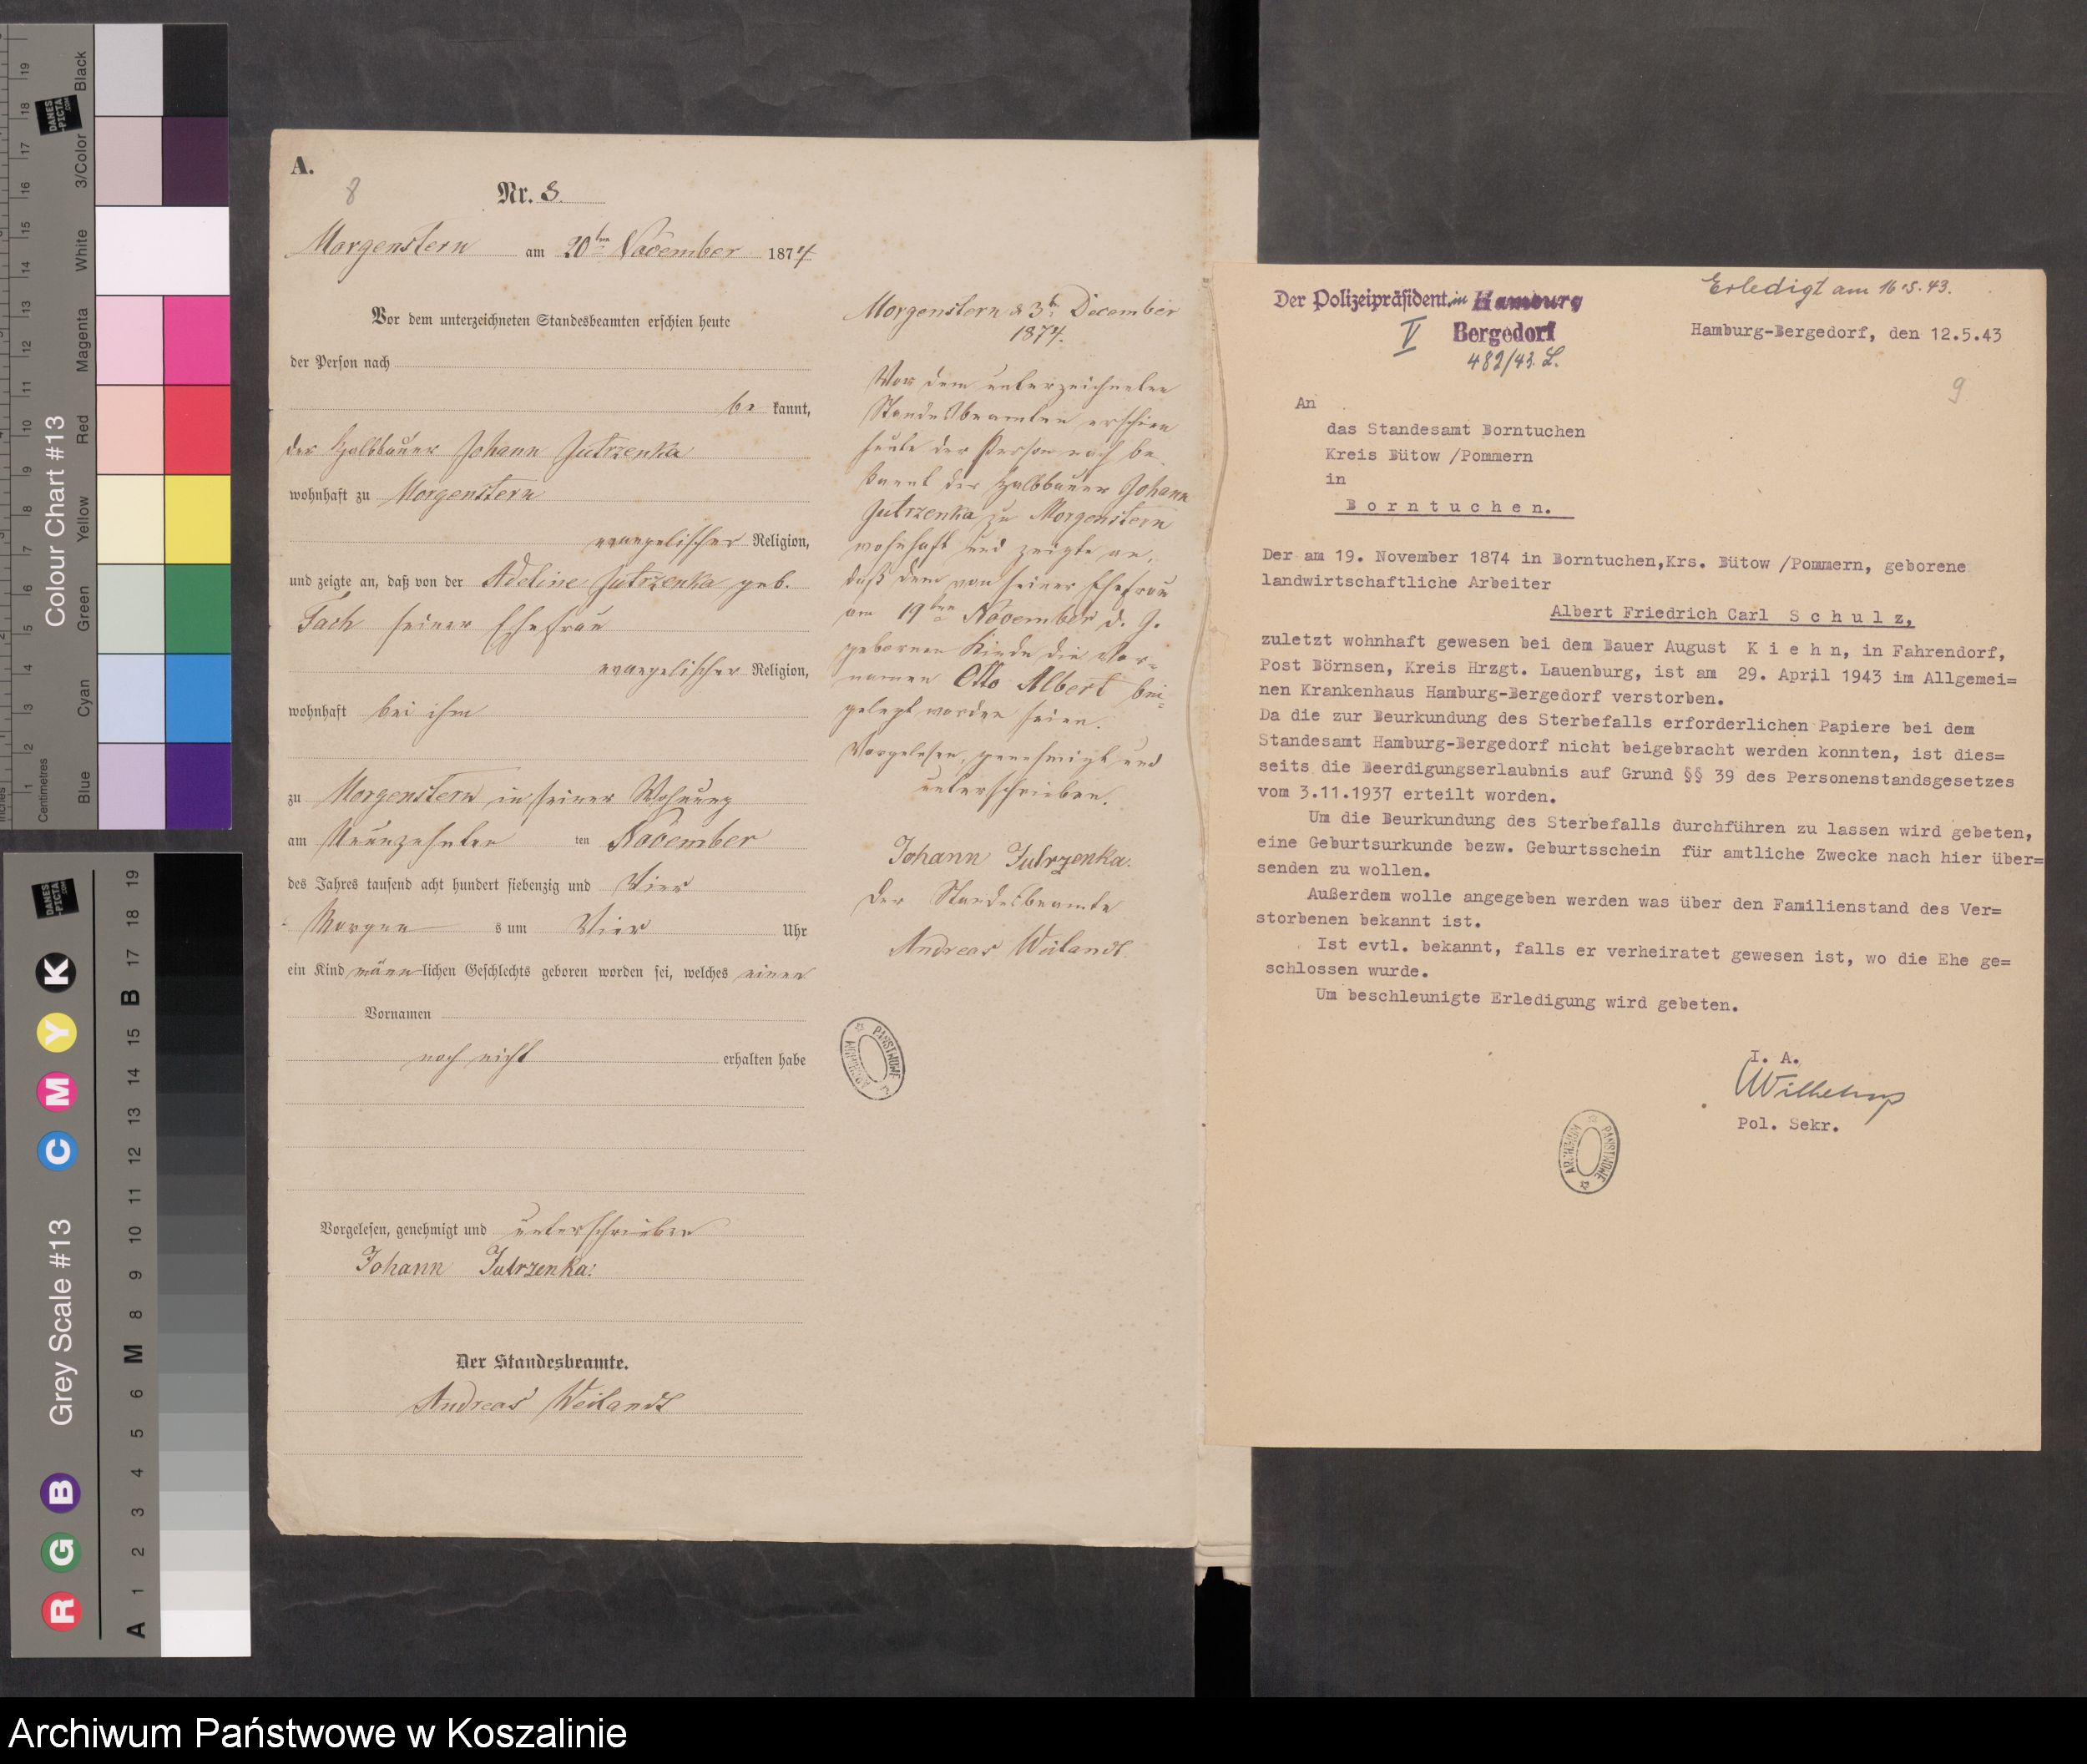 A.
8
Nr. 8.
Morgenstern am 20ten November 1874
Vor dem unterzeichneten Standesbeamten erschien heute
der Person nach
be kannt,
der Halbbauer Johann Jutrzenka
wohnhaft zu Morgenstern
evangelischer Religion,
und zeigte an, daß von der Adeline Jutrzenka geb.
Sach seiner Ehefrau
evangelischer Religion,
wohnhaft bei ihm
zu Morgenstern in seiner Wohnung
am Neunzehnten ten November
des Jahres tausend acht hundert siebenzig und Vier
Morgen s um Vier Uhr
ein Kind männ lichen Geschlechts geboren worden sei, welches einen
Vornamen
noch nicht erhalten habe
Vorgelesen, genehmigt und unterschrieben
Johann Jutrzenka.
Der Standesbeamte.
Andreas Weilandt
Morgenstern d 3t. December
1874.
Vor dem unterzeichneten
Standesbeamten erschien
heute der Person nach be
kannt der Halbbauer Johann
Jutrzenka zu Morgenstern
wohnhaft und zeigte an,
daß dem von seiner Ehefrau
am 19ten November d. J.
gebornen Kinde die Vor=
namen Otto Albert bei=
gelegt worden seien.
Vorgelesen, genehmigt und
unterschrieben.
Johann Jutrzenka.
Der Standesbeamte
Andreas Weilandt.
ARCHIWUM PAŃSTWOWE
Erledigt am 16.5.43.
Der Polizeipräsident in Hamburg
V Bergedorf
482/43. L.
Hamburg-Bergedorf, den 12.5.43
9
An
das Standesamt Borntuchen
Kreis Bütow /Pommern
in
B o r n t u c h e n.
Der am 19. November 1874 in Borntuchen,Krs. Bütow /Pommern, geborene
landwirtschaftliche Arbeiter
Albert Friedrich Carl S c h u l z,
zuletzt wohnhaft gewesen bei dem Bauer August K i e h n, in Fahrendorf,
Post Börnsen, Kreis Hrzgt. Lauenburg, ist am 29. April 1943 im Allgemei=
nen Krankenhaus Hamburg-Bergedorf verstorben.
Da die zur Beurkundung des Sterbefalls erforderlichen Papiere bei dem
Standesamt Hamburg-Bergedorf nicht beigebracht werden konnten, ist dies=
seits die Beerdigungserlaubnis auf Grund §§ 39 des Personenstandsgesetzes
vom 3.11.1937 erteilt worden.
Um die Beurkundung des Sterbefalls durchführen zu lassen wird gebeten,
eine Geburtsurkunde bezw. Geburtsschein für amtliche Zwecke nach hier über=
senden zu wollen.
Außerdem wolle angegeben werden was über den Familienstand des Ver=
storbenen bekannt ist.
Ist evtl. bekannt, falls er verheiratet gewesen ist, wo die Ehe ge=
schlossen wurde.
Um beschleunigte Erledigung wird gebeten.
I. A.
Pol. Sekr.
ARCHIWUM PAŃSTWOWE
Colour Chart #13
Black
3/Color
White
Magenta
Red
Yellow
Green
Cyan
Blue
Centimetres
Inches
1 2 3 4 5 6 7 8 9 10 11 12 13 14 15 16 17 18 19
DANES-PICTA.COM
Grey Scale #13
R G B C M Y K
A 1 2 3 4 5 6 M 8 9 10 11 12 13 14 15 B 17 18 19
DANES-PICTA.COM
Archiwum Państwowe w Koszalinie